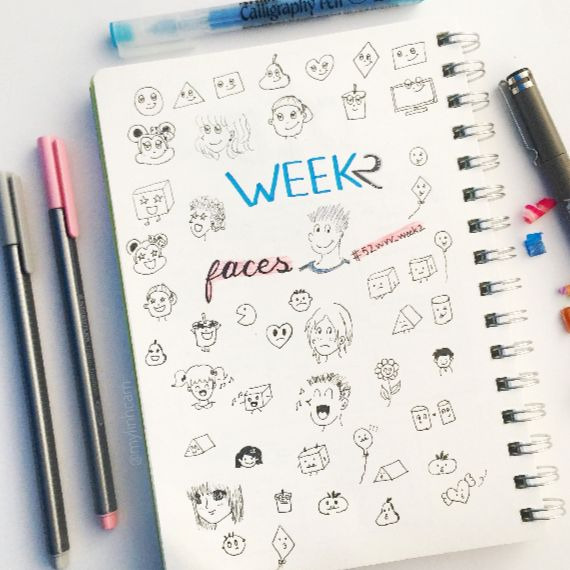 Calligraphy Pen
WEEK 2
faces
#52wvv_week2
@mylinhcam